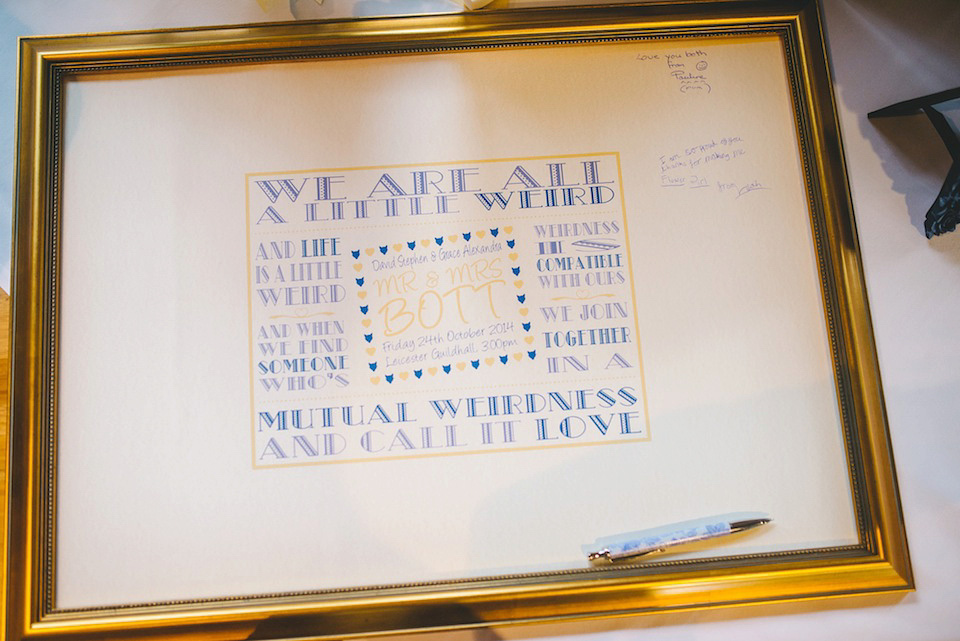 Love you both
from
Pauline
I am so proud of you
for making me
from
WE ARE ALL
A LITTLE WEIRD
AND LIFE
IS A LITTLE
WEIRD
AND WHEN
WE FIND
SOMEONE
WHO'S
David Stephen & Grace Alexandra
MR & MRS
BOTT
Friday 24th October 2014
Leicester Guildhall, 3:00pm
WEIRDNESS
IS
COMPATIBLE
WITH OURS
WE JOIN
TOGETHER
IN A
MUTUAL WEIRDNESS
AND CALL IT LOVE